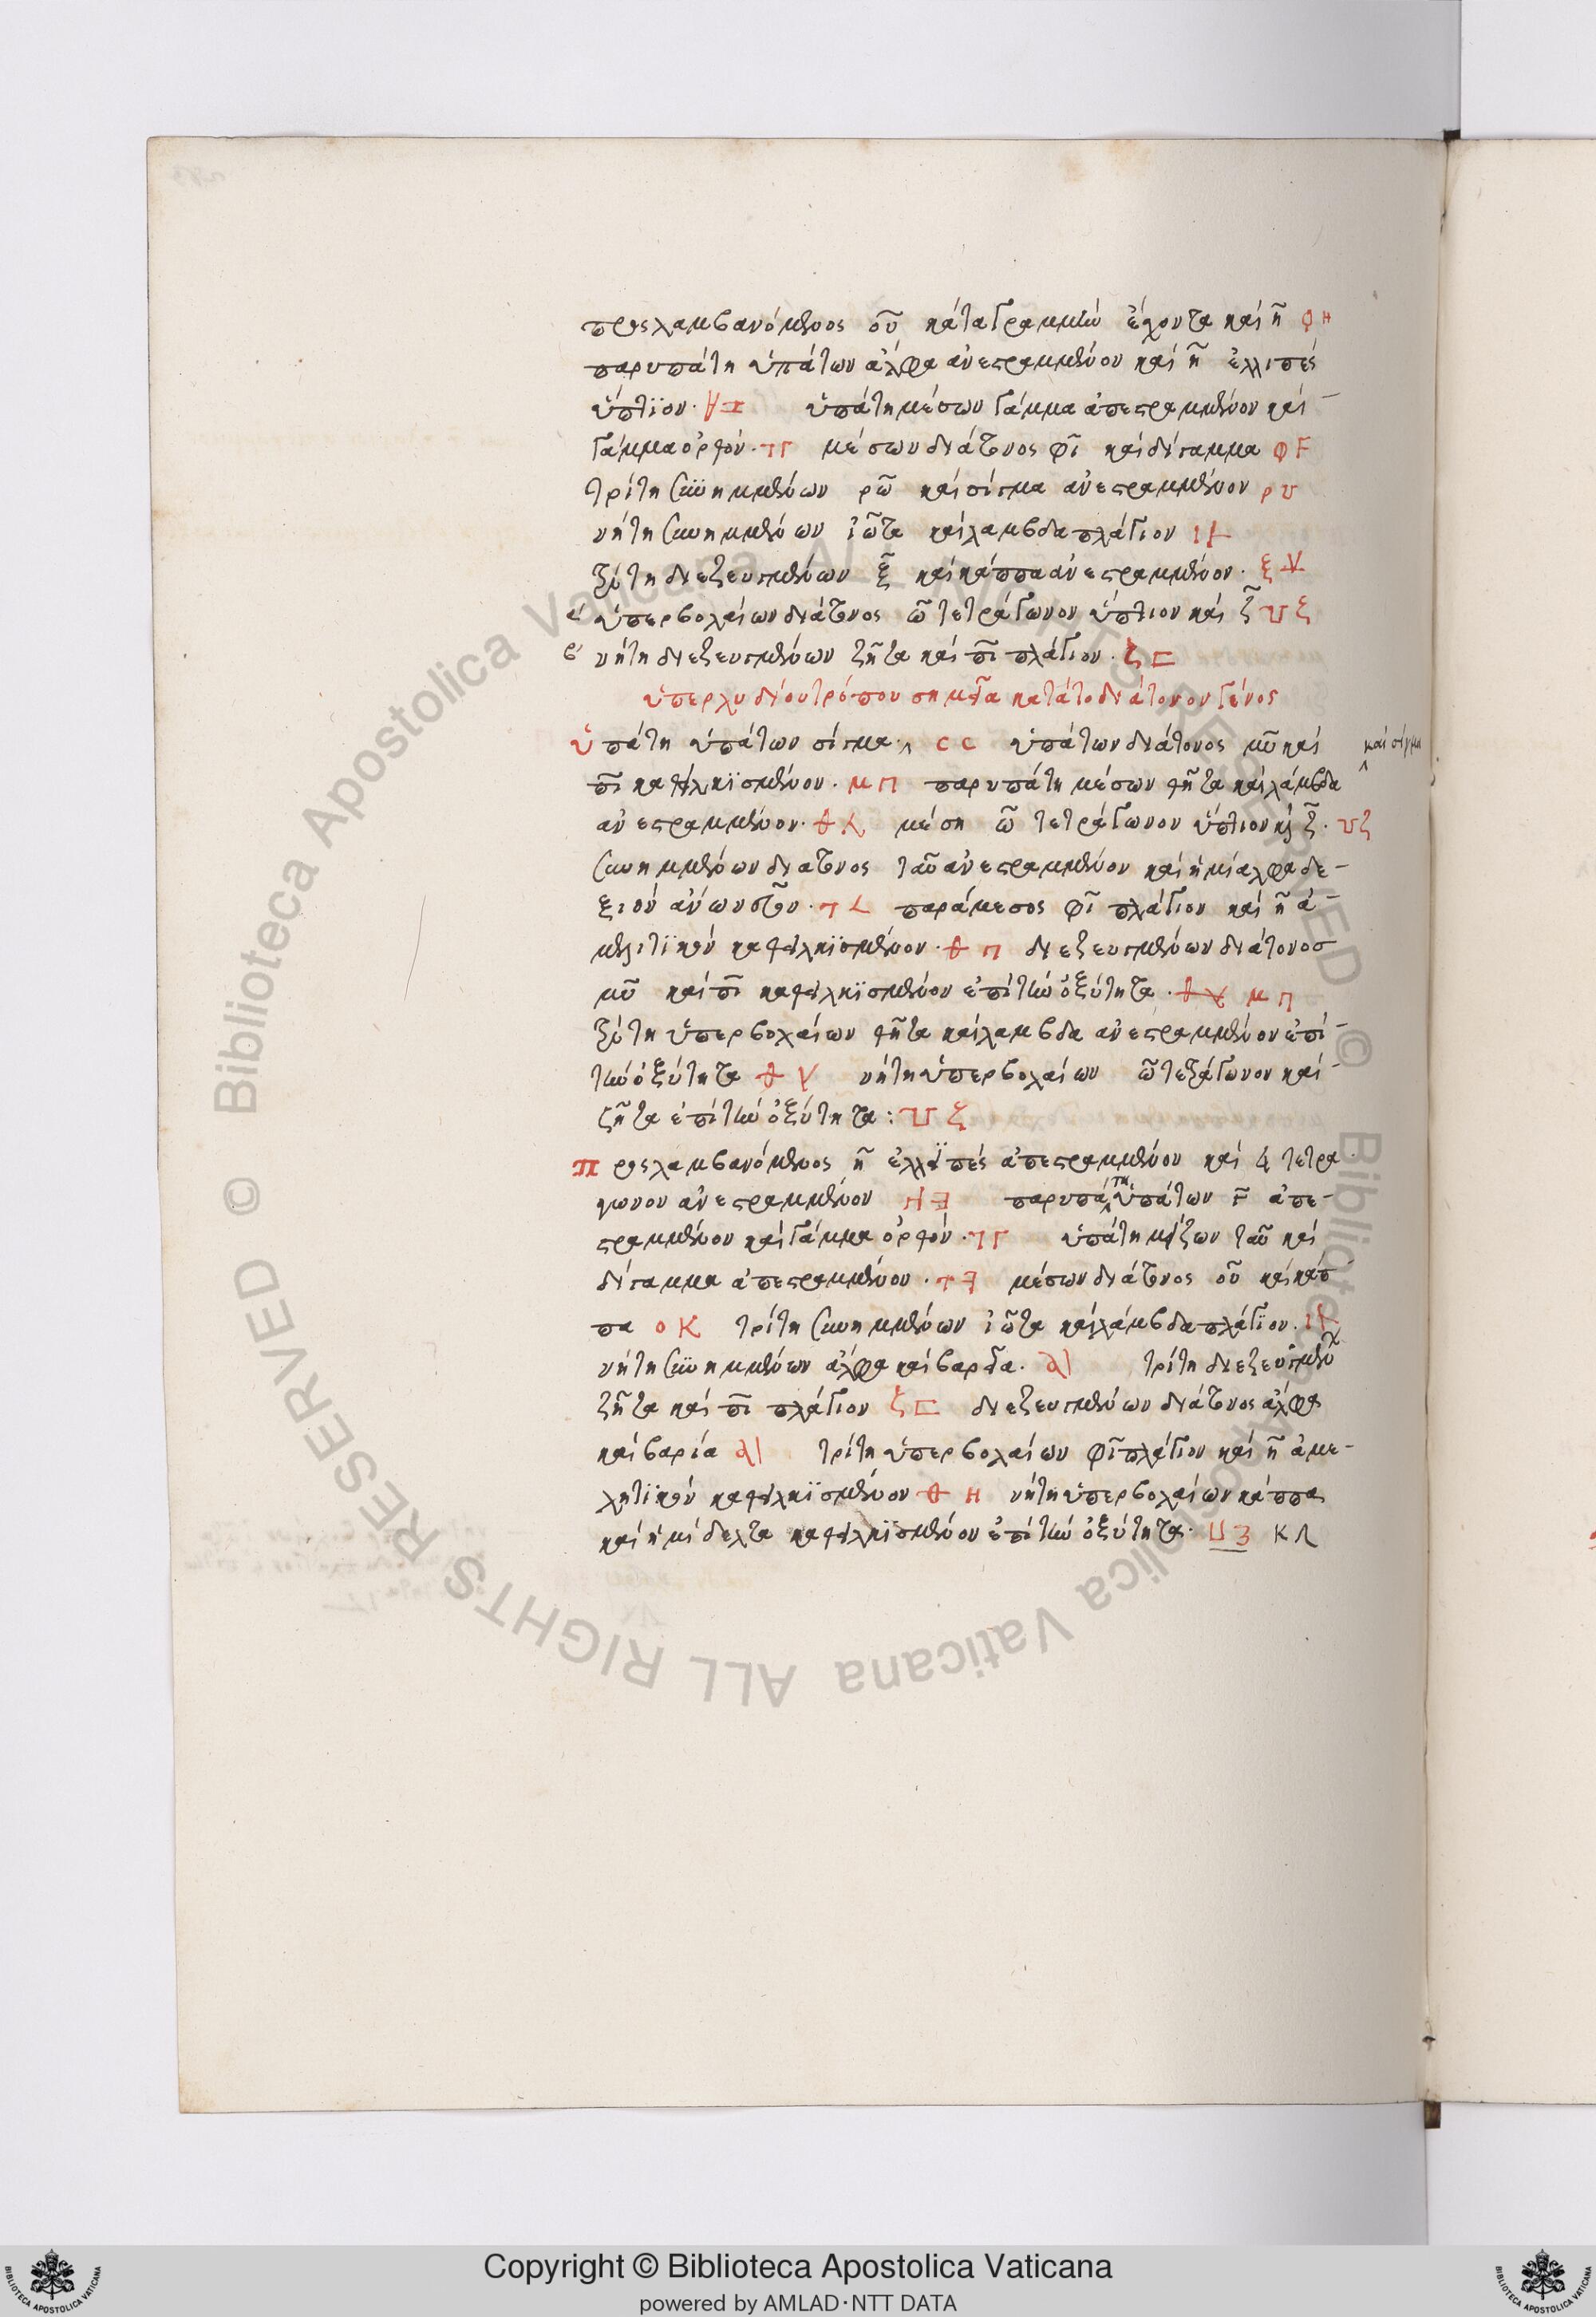 προσλαμβανόμενος οῦ κάτα γραμμὴν ἔχοντα καὶ ῆ φ Η
παρυπάτη ὑπάτων ἄλφα ἀνεστραμμένον καὶ ῆ ἐλλιπές
ὕπτϊον · ὑπάτη μέσων γάμμα ἀπεστραμμένον καὶ
γάμμα ὀρθόν · ꓶΓ μέσων διάτονος φῖ καὶ δίγαμμα φ F
τρίτη συνημμένων ρῶ καὶ σίγμα ἀνεστραμμένον ρ υ
νήτη συνημμένων ἰῶτα καὶ λαμβδα πλάγιον
τρίτη διεζευγμένων ξ καὶ κάππα ἀνεστραμμένον · ξ
α' ὑπερβολαίων διάτονος ῶ τετράγωνον ὕπτιον καὶ ζ
β' νήτη διεζευγμένων ζῆτα καὶ πῖ πλάγιον · ζ ⊏
ὑπερλυδίου τρόπου σημεῖα κατὰ τὸ διάτονον γένος
ὑπάτη ὑπάτων σίγμα · C C ὑπάτων διάτονος μῦ καὶ
καὶ σίγμα
πῖ καθειλκϊσμένον · Μ Π παρυπάτη μέσων θῆτα καὶ λάμβδα
ἀνεστραμμένον · θ μέση ῶ τετράγωνον ὕπτιον καὶ ζ · υ ζ
συνημμένων διάτονος ταῦ ἀνεστραμμένον καὶ ἡμίαλφα δε-
ξιὸν ἄνω νεῦον · παράμεσος φῖ πλάγιον καὶ ῆ ἀ-
μελιτϊκὸν καθειλκϊσμένον · θ Π διεζευγμένων διάτονοσ
μῦ καὶ πῖ καθειλκϊσμένον ἐπὶ τὴν ὀξύτητα · Μ Π
τρίτη ὑπερβολαίων θῆτα καὶ λαμβδα ἀνεστραμμένον ἐπὶ
τὴν ὀξύτητα θ V νήτη ὑπερβολαίων ῶ τετράγωνον καὶ
ζῆτα ἐπὶ τὴν ὀξύτητα : ζ
Προσλαμβανόμενος ῆ ἐλλϊπές ἀπεστραμμένον καὶ τετρα
γωνον ἀνεστραμμένον Η Ǝ παρυπάτη ὑπάτων F ἀπε-
στραμμένον καὶ γάμμα ὀρθόν · ꓶΓ ὑπάτη μέσων ταῦ καὶ
δίγαμμα ἀπεστραμμένον · τ Ǝ μέσων διάτονος οῦ καὶ κάπ
πα ο Κ τρίτη συνημμένων ἰῶτα καὶ λάμβδα πλάγϊον ·
νήτη συνημμένων ἄλφα καὶ βαρεῖα · α\ τρίτη διεζευγμένων
ζῆτα καὶ πῖ πλάγιον ζ ⊏ διεζευγμένων διάτονος ἄλφα
καὶ βαρία α\ τρίτη ὑπερβολαίων φῖ πλάγιον καὶ ῆ ἀμε-
λητϊκὸν καθειλκϊσμένον θ Η νήτη ὑπερβολαίων κάππα
καὶ ἡμίδελτα καθειλκϊσμένον ἐπὶ τὴν ὀξύτητα · Κ Λ
Copyright © Biblioteca Apostolica Vaticana
powered by AMLAD·NTT DATA